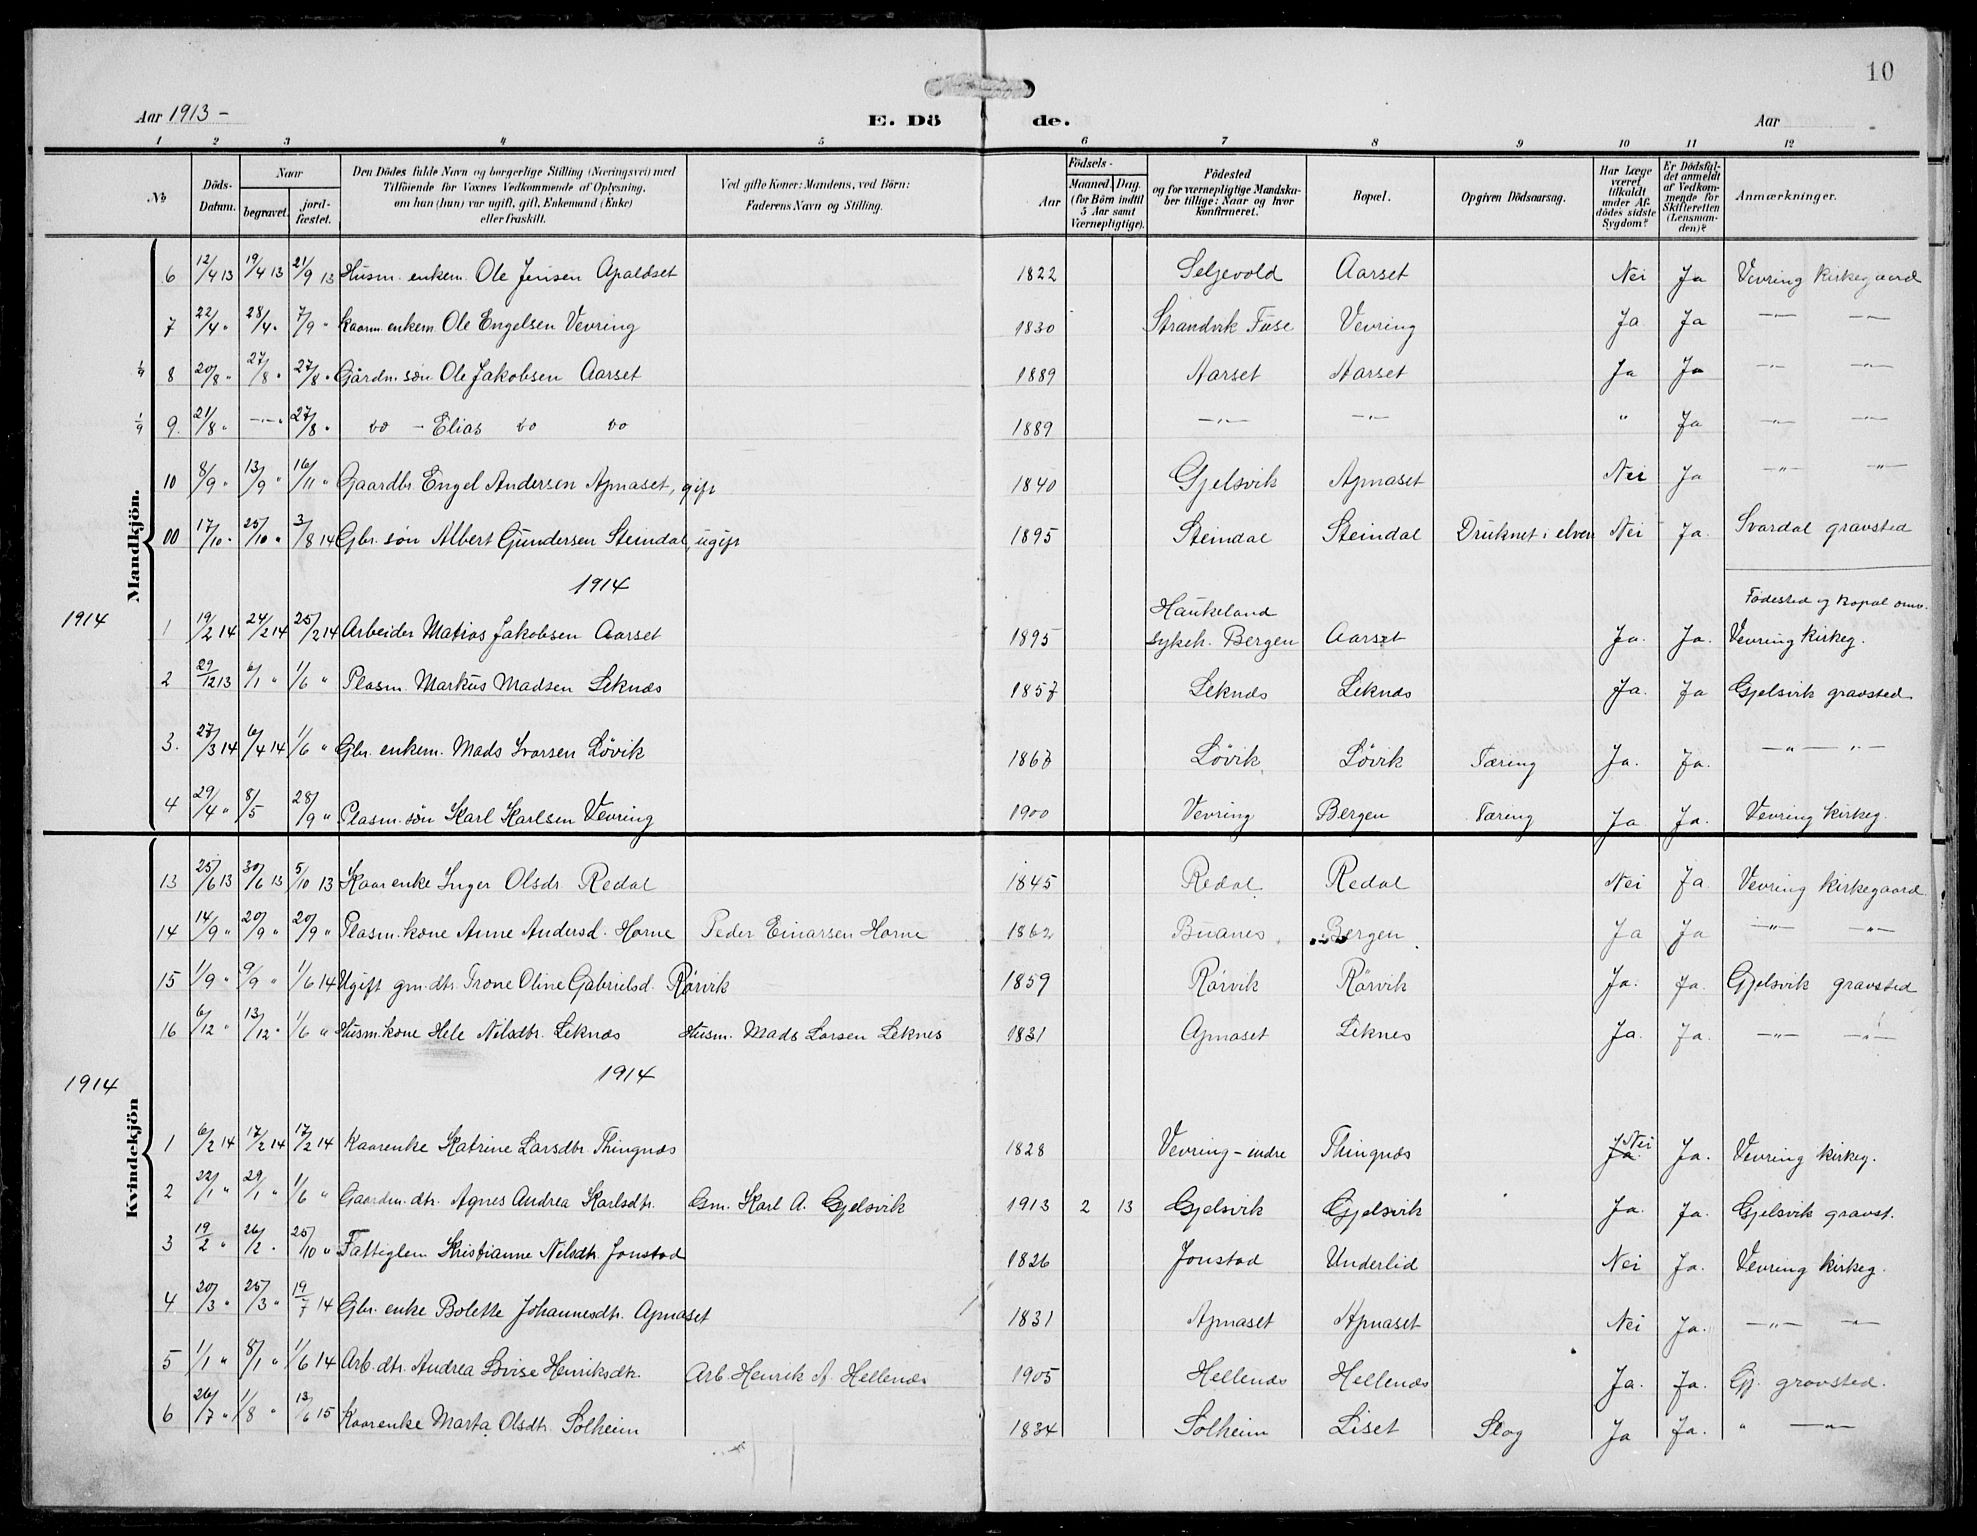 10
Aar 1913 - E. Dö de. Aar
1 2 3 4 5 6 7 8 9 10 11 12
No. | Döds-Datum. | Naar begravet. | jordfæstet. | Den Dödes fulde Navn og borgerlige Stilling (Næringsvei) med Tilföiende for Voxnes Vedkommende af Oplysning, om han (hun) var ugift, gift, Enkemand (Enke) eller fraskilt. | Ved gifte Koner: Mandens, ved Börn: Faderens Navn og Stilling. | Födsels- Aar | Maaned. | Dag. (for Börn indtil 5 Aar samt Værnepligtige). | Födested og for værnepligtige Mandskaber tillige: Naar og hvor konfirmeret. | Bopæl. | Opgiven Dödsaarsag. | Har Læge været tilkaldt under Afdödes sidste Sygdom? | Er Dödsfaldet anmeldt af Vedkommende for Skifteretten (Lensmanden)? | Anmærkninger.
Mandkjön.
6 12/4 13 19/4 13 21/9 13 Husm. enkem. Ole Jensen Apaldset 1822 Seljevold Aarset Nei Ja Vevring Kirkegaard
7 22/4 " 28/4 " 7/9 " Kaarm. enkem. Ole Engelsen Vevring 1830 Strandvik Fuse Vevring Ja Ja —"— —"—
1/9 8 20/8 " 27/8 " 27/8 " Gårdm. søn Ole Jakobsen Aarset 1889 Aarset Aarset Ja Ja —"— —"—
1/9 9. 21/8 " —"— 27/8 " do - Elias do do 1889 —"— —"— " Ja —"— —"—
10 8/9 " 13/9 " 16/11 " Gaardbr. Engel Andersen Apnaset, gift 1840 Gjelsvik Apnaset Nei Ja —"— —"—
00 17/10 " 25/10 " 3/8 14 Gbr. søn Albert Gundersen Steindal, ugift 1895 Steindal Steindal Druknet i elven Nei Ja. Svardal gravsted
1914
1914 1 19/2 14 24/2 14 25/2 14 Arbeider Matias Jakobsen Aarset 1895 Haukeland sykeh. Bergen Aarset Ja. Ja. Fødested og Bopæl omv. Vevring Kirkeg.
2 29/12 13 6/1 " 1/6 " Plasm. Markus Madsen Leknæs 1857 Leknæs Leknæs Ja. Ja Gjelsvik gravsted
3. 27/3 14 6/4 14 1/6 " Gbr. enkem. Mads Ivarsen Løvik 1867 Løvik Løvik Tæring Ja. Ja. —"— —"—
4 29/4 " 8/5 28/9 " Plasm. søn Karl Karlsen Vevring 1900 Vevring Bergen Tæring Ja Ja. Vevring Kirkeg.
Kvindekjön
13 25/6 13 30/6 13 5/10 13 Kaarenke Inger Olsdr. Redal 1845 Redal Redal Nei Ja Vevring Kirkegaard
14 14/9 " 20/9 " 20/9 " Plasm. kone Anne Andersd. Horne Peder Einarsen Horne 1862 Buanes Bergen Ja Ja —"— —"—
15 1/9 " 9/9 " 1/6 14 Ugift gm. dtr. Trone Oline Gabrielsd. Rørvik 1859 Rørvik Rørvik Ja. Ja. Gjelsvik gravsted
16 6/12 " 13/12 " 1/6 " Husm. kone Hele Nilsdtr. Leknæs Husm. Mads Larsen Leknes 1831 Apnaset Leknes Ja. Ja. —"— —"—
1914
1914
1 6/2 14 17/2 14 17/2 14 Kaarenke Katrine Larsdtr. Thingnæs 1828 Vevring - indre Thingnæs Ja. Nei Ja. Vevring Kirkeg.
2 22/1 " 29/1 " 1/6 " Gaardm. dtr. Agnes Andrea Karlsdtr. Gm. Karl A. Gjelsvik 1913 2 13 Gjelsvik Gjelsvik Ja. Ja. Gjelsvik gravst.
3 19/2 " 26/2 " 25/10 " Fattiglem Kristianne Nilsdtr. Jonstad 1826 Jonstad Underlid Nei Ja. Vevring Kirkeg.
4 20/3 " 25/3 " 19/7 14 Gbr. enke Bolette Johannesdtr. Apnaset 1831 Apnaset Apnaset Nei Ja. —"— —"—
5 1/1 " 8/1 " 1/6 14 Arb. dtr. Andrea Lovise Henriksdtr. Arb. Henrik A. Hellenæs 1905 Hellenæs Hellenæs Ja. Ja. Gj. gravsted.
6 26/7 " 1/8 " 13/6 15 Kaarenke Marta Olsdtr. Solheim 1834 Solheim Liset Slag Ja Ja. " —"—